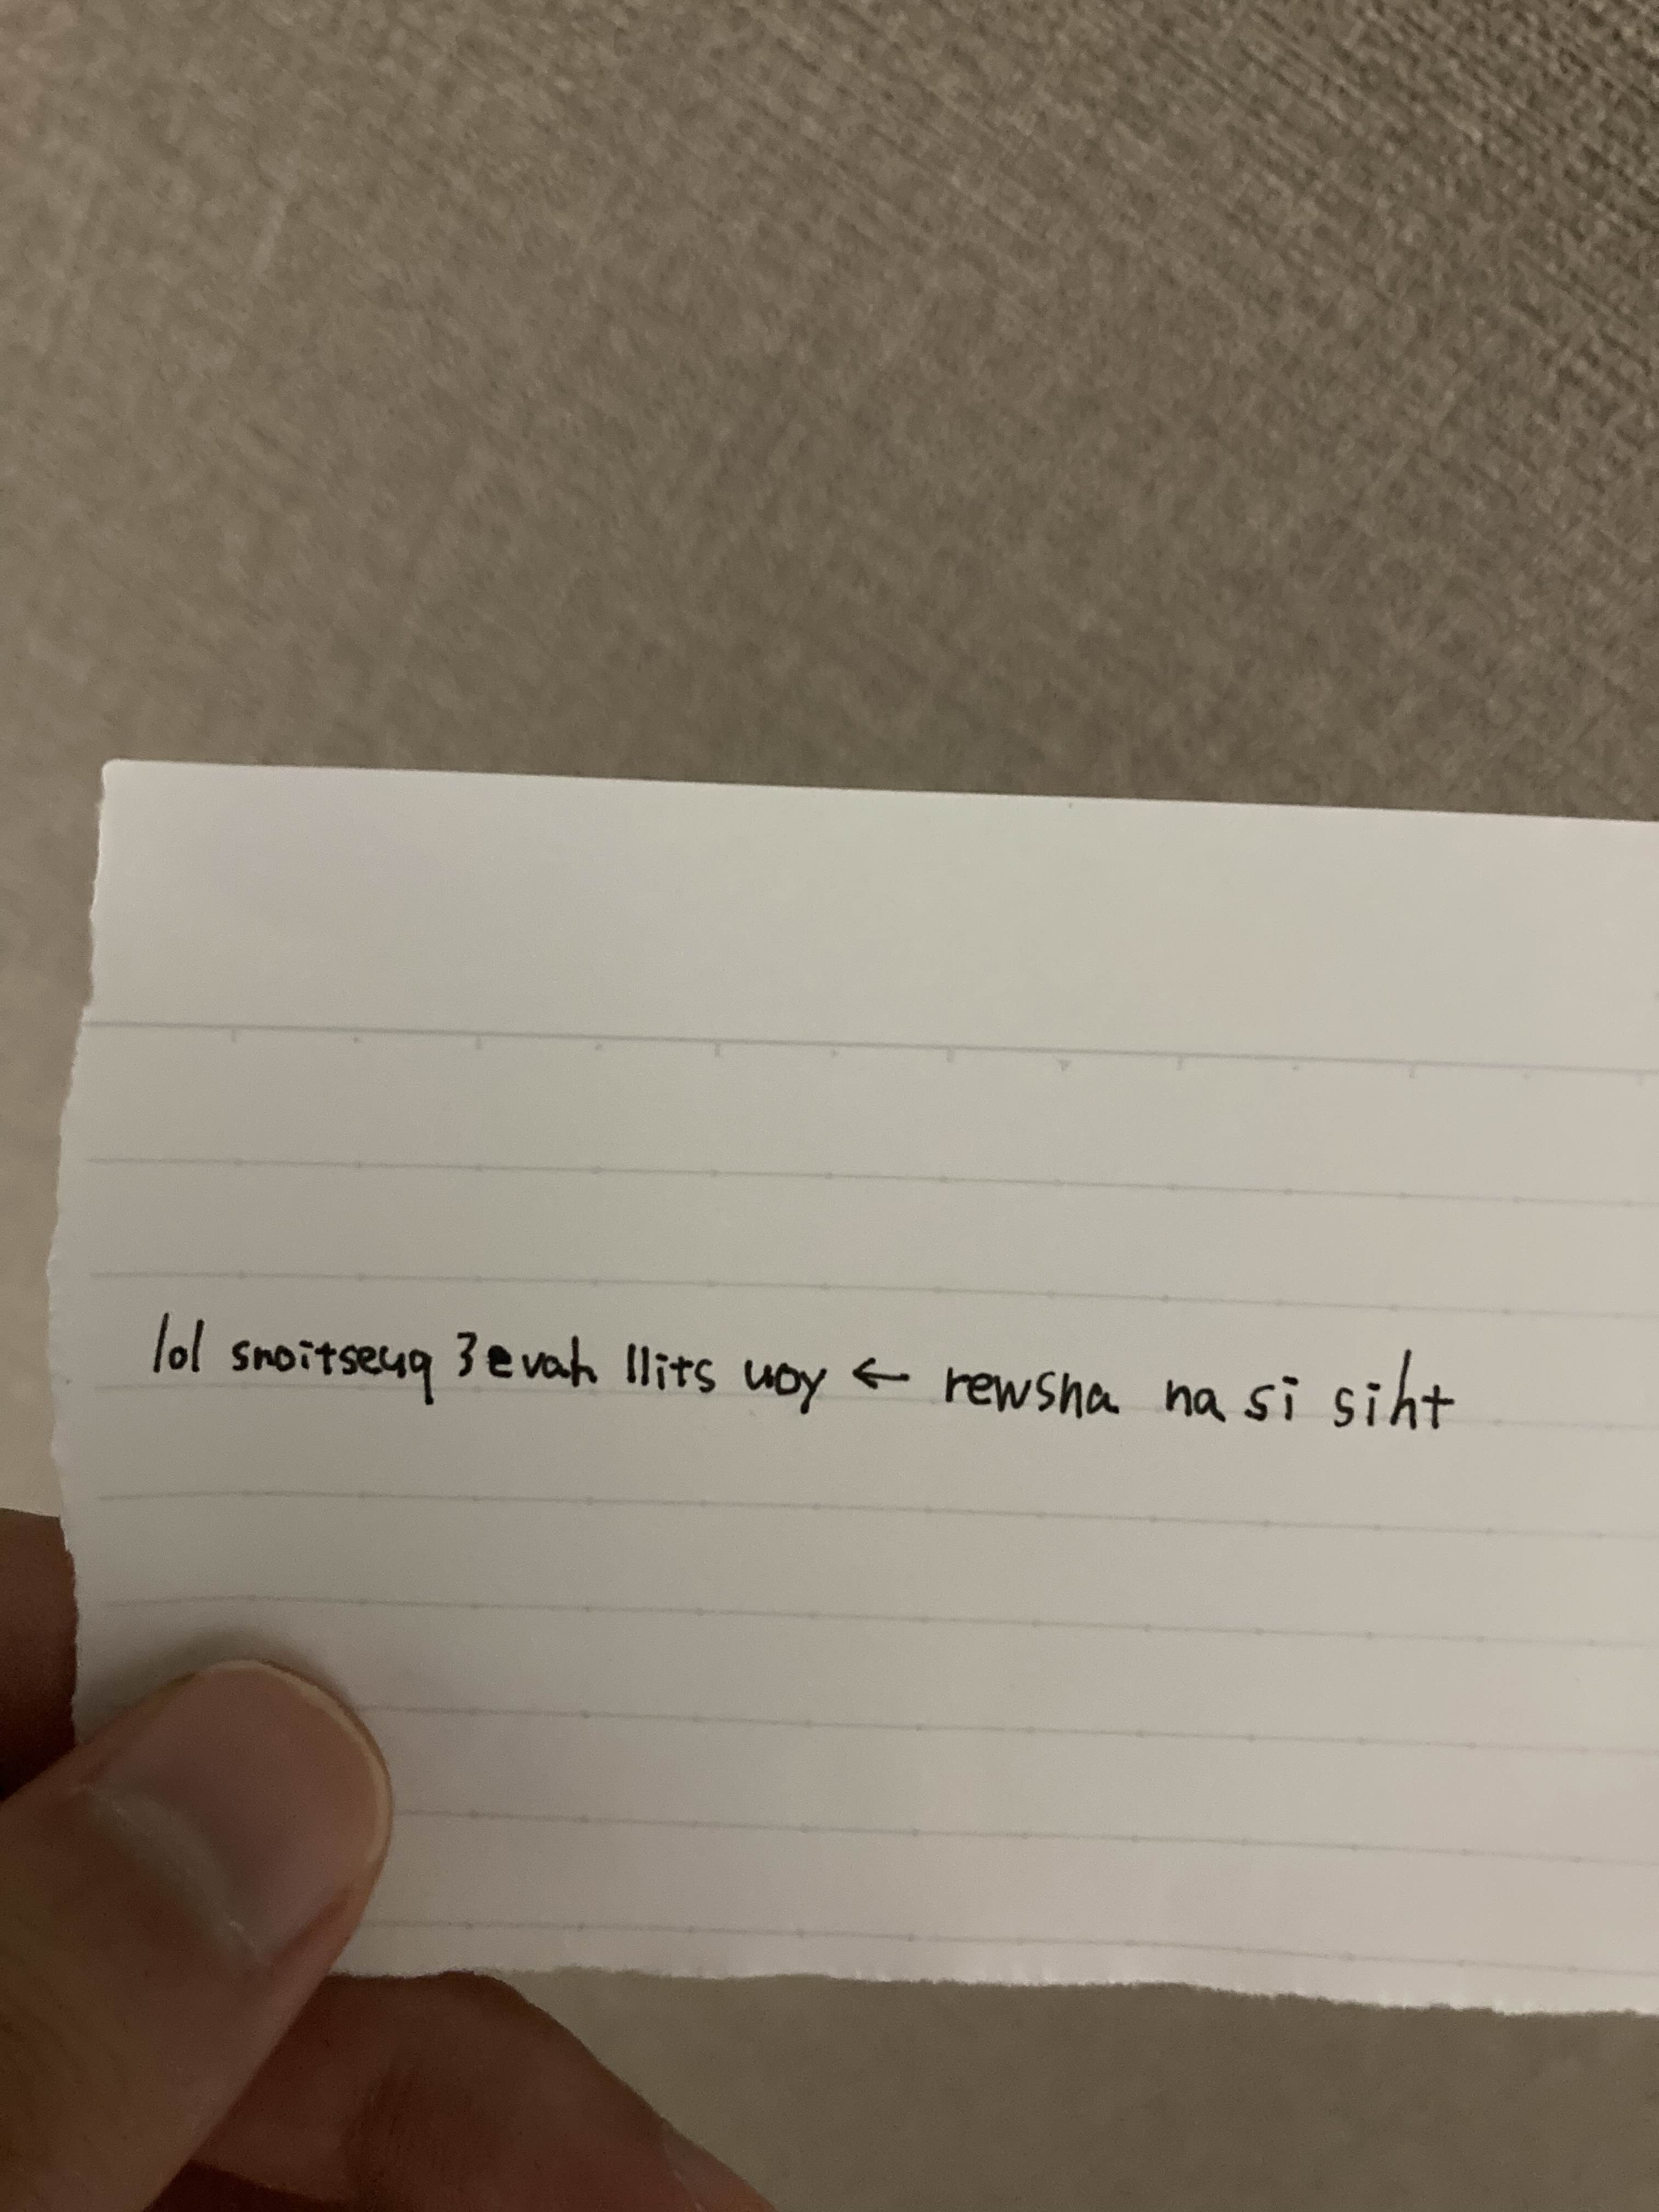 lol snoitseuq 3evah llits uoy ← rewsna na si siht